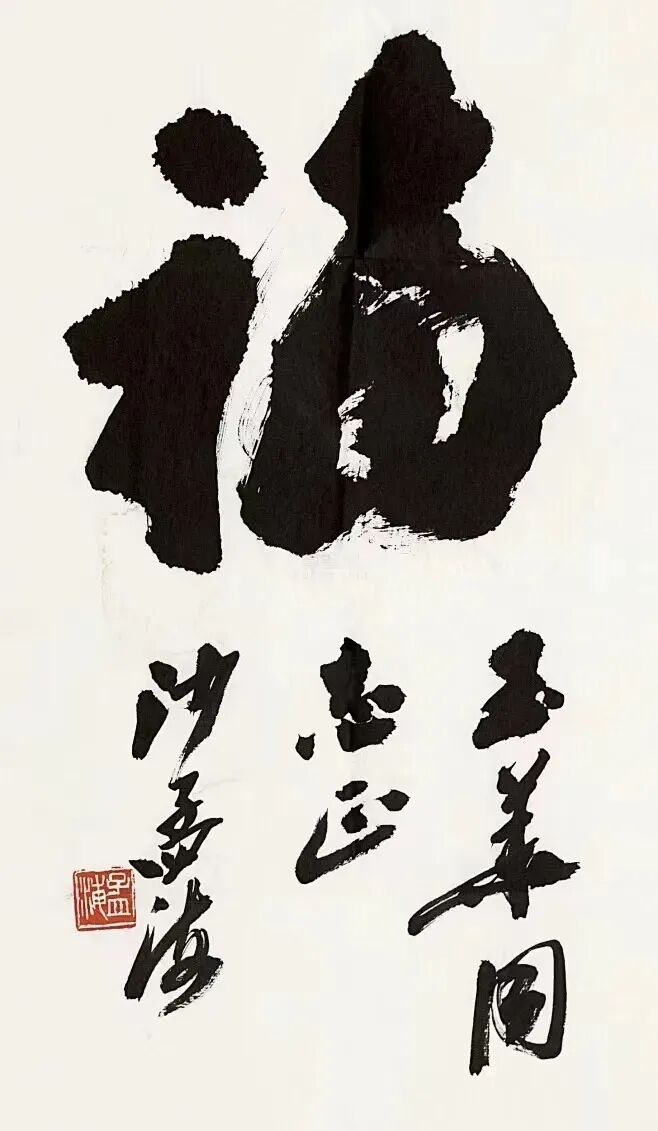 福
玉華同
志正
沙孟海
孟海